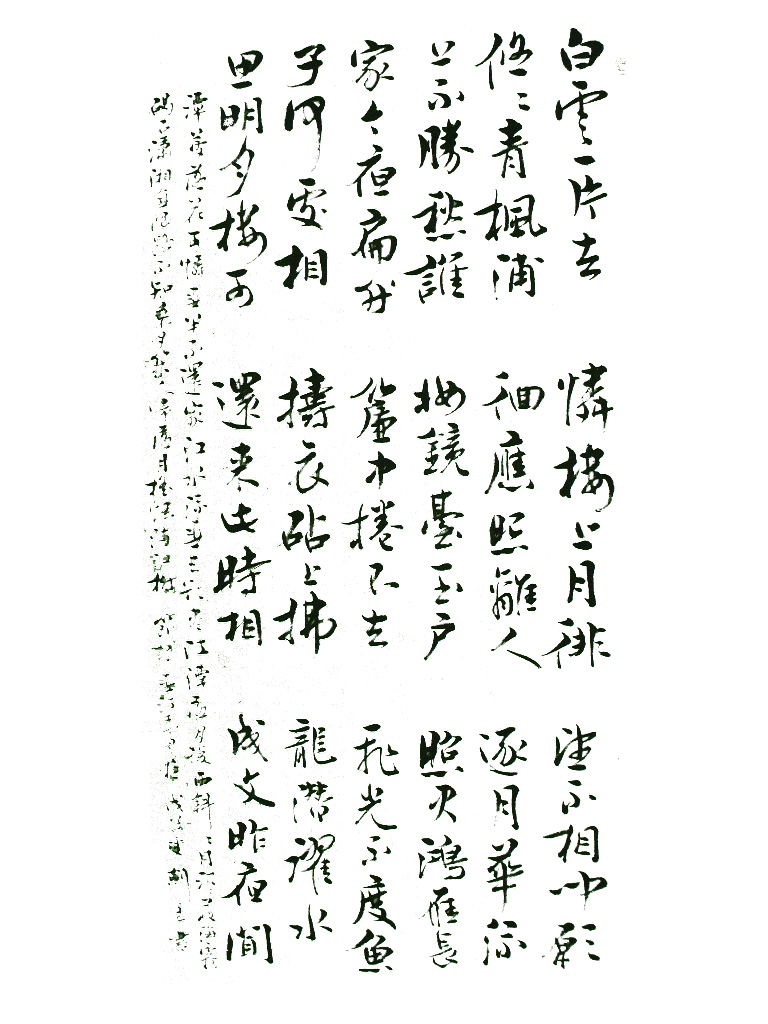 白雲一片去
悠〻青楓浦
上不勝愁誰
家今夜扁舟
子何處相
思明月樓可
憐樓上月徘
徊應照離人
妝鏡臺玉戶
簾中捲不去
擣衣砧上拂
還來此時相
望不相聞願
逐月華流
照君鴻雁長
飛光不度魚
龍潛躍水
成文昨夜閒
潭夢落花可憐春半不還家江水流春去欲盡江潭落月復西斜〻月沉〻藏海霧
碣石瀟湘無限路不知乘月幾人歸落月搖情滿江樹